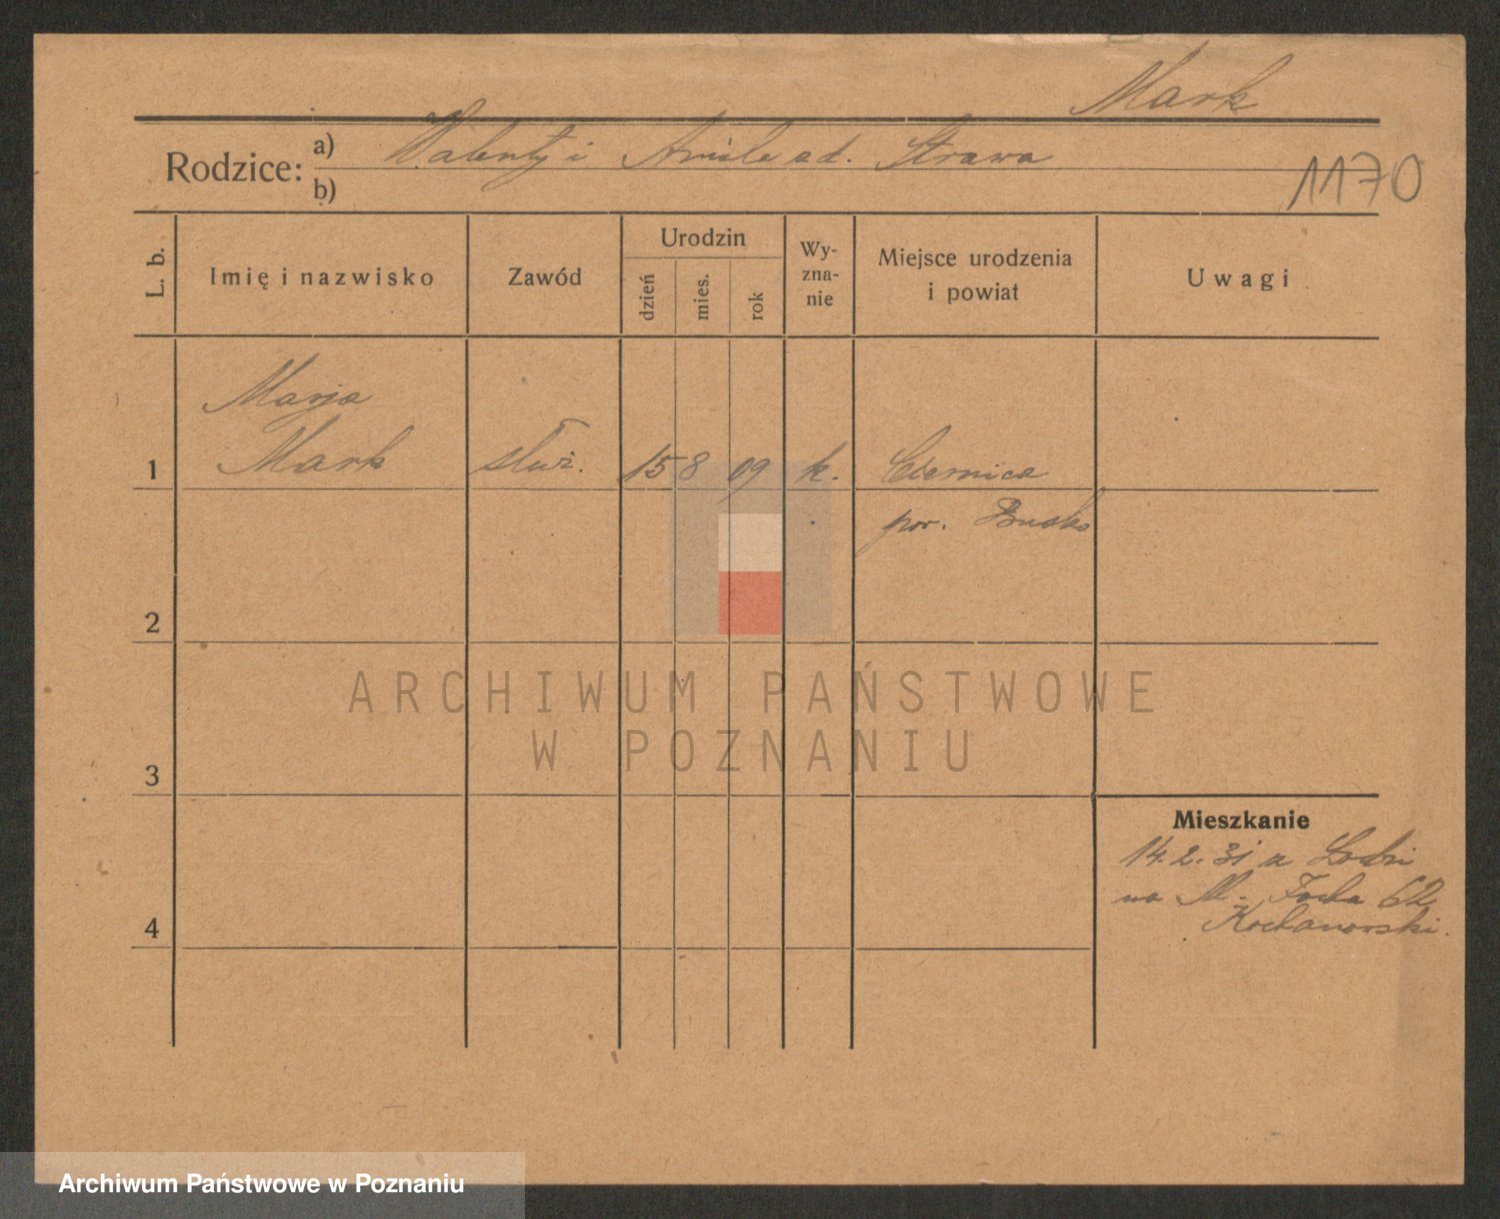 Mark
Rodzice: a) Walenty i Amilia d. Strawa
b)
1170
L. b.
Imię i nazwisko
Zawód
Urodzin
dzień
mies.
rok
Wy-
zna-
nie
Miejsce urodzenia
i powiat
Uwagi
Marja
1 Mark służ. 15 8 09 k.
pow. Busko
2
ARCHIWUM PAŃSTWOWE
W POZNANIU
3
Mieszkanie
14.2.31 z Łodzi
na M. Focha 62
Kochanowski.
4
Archiwum Państwowe w Poznaniu